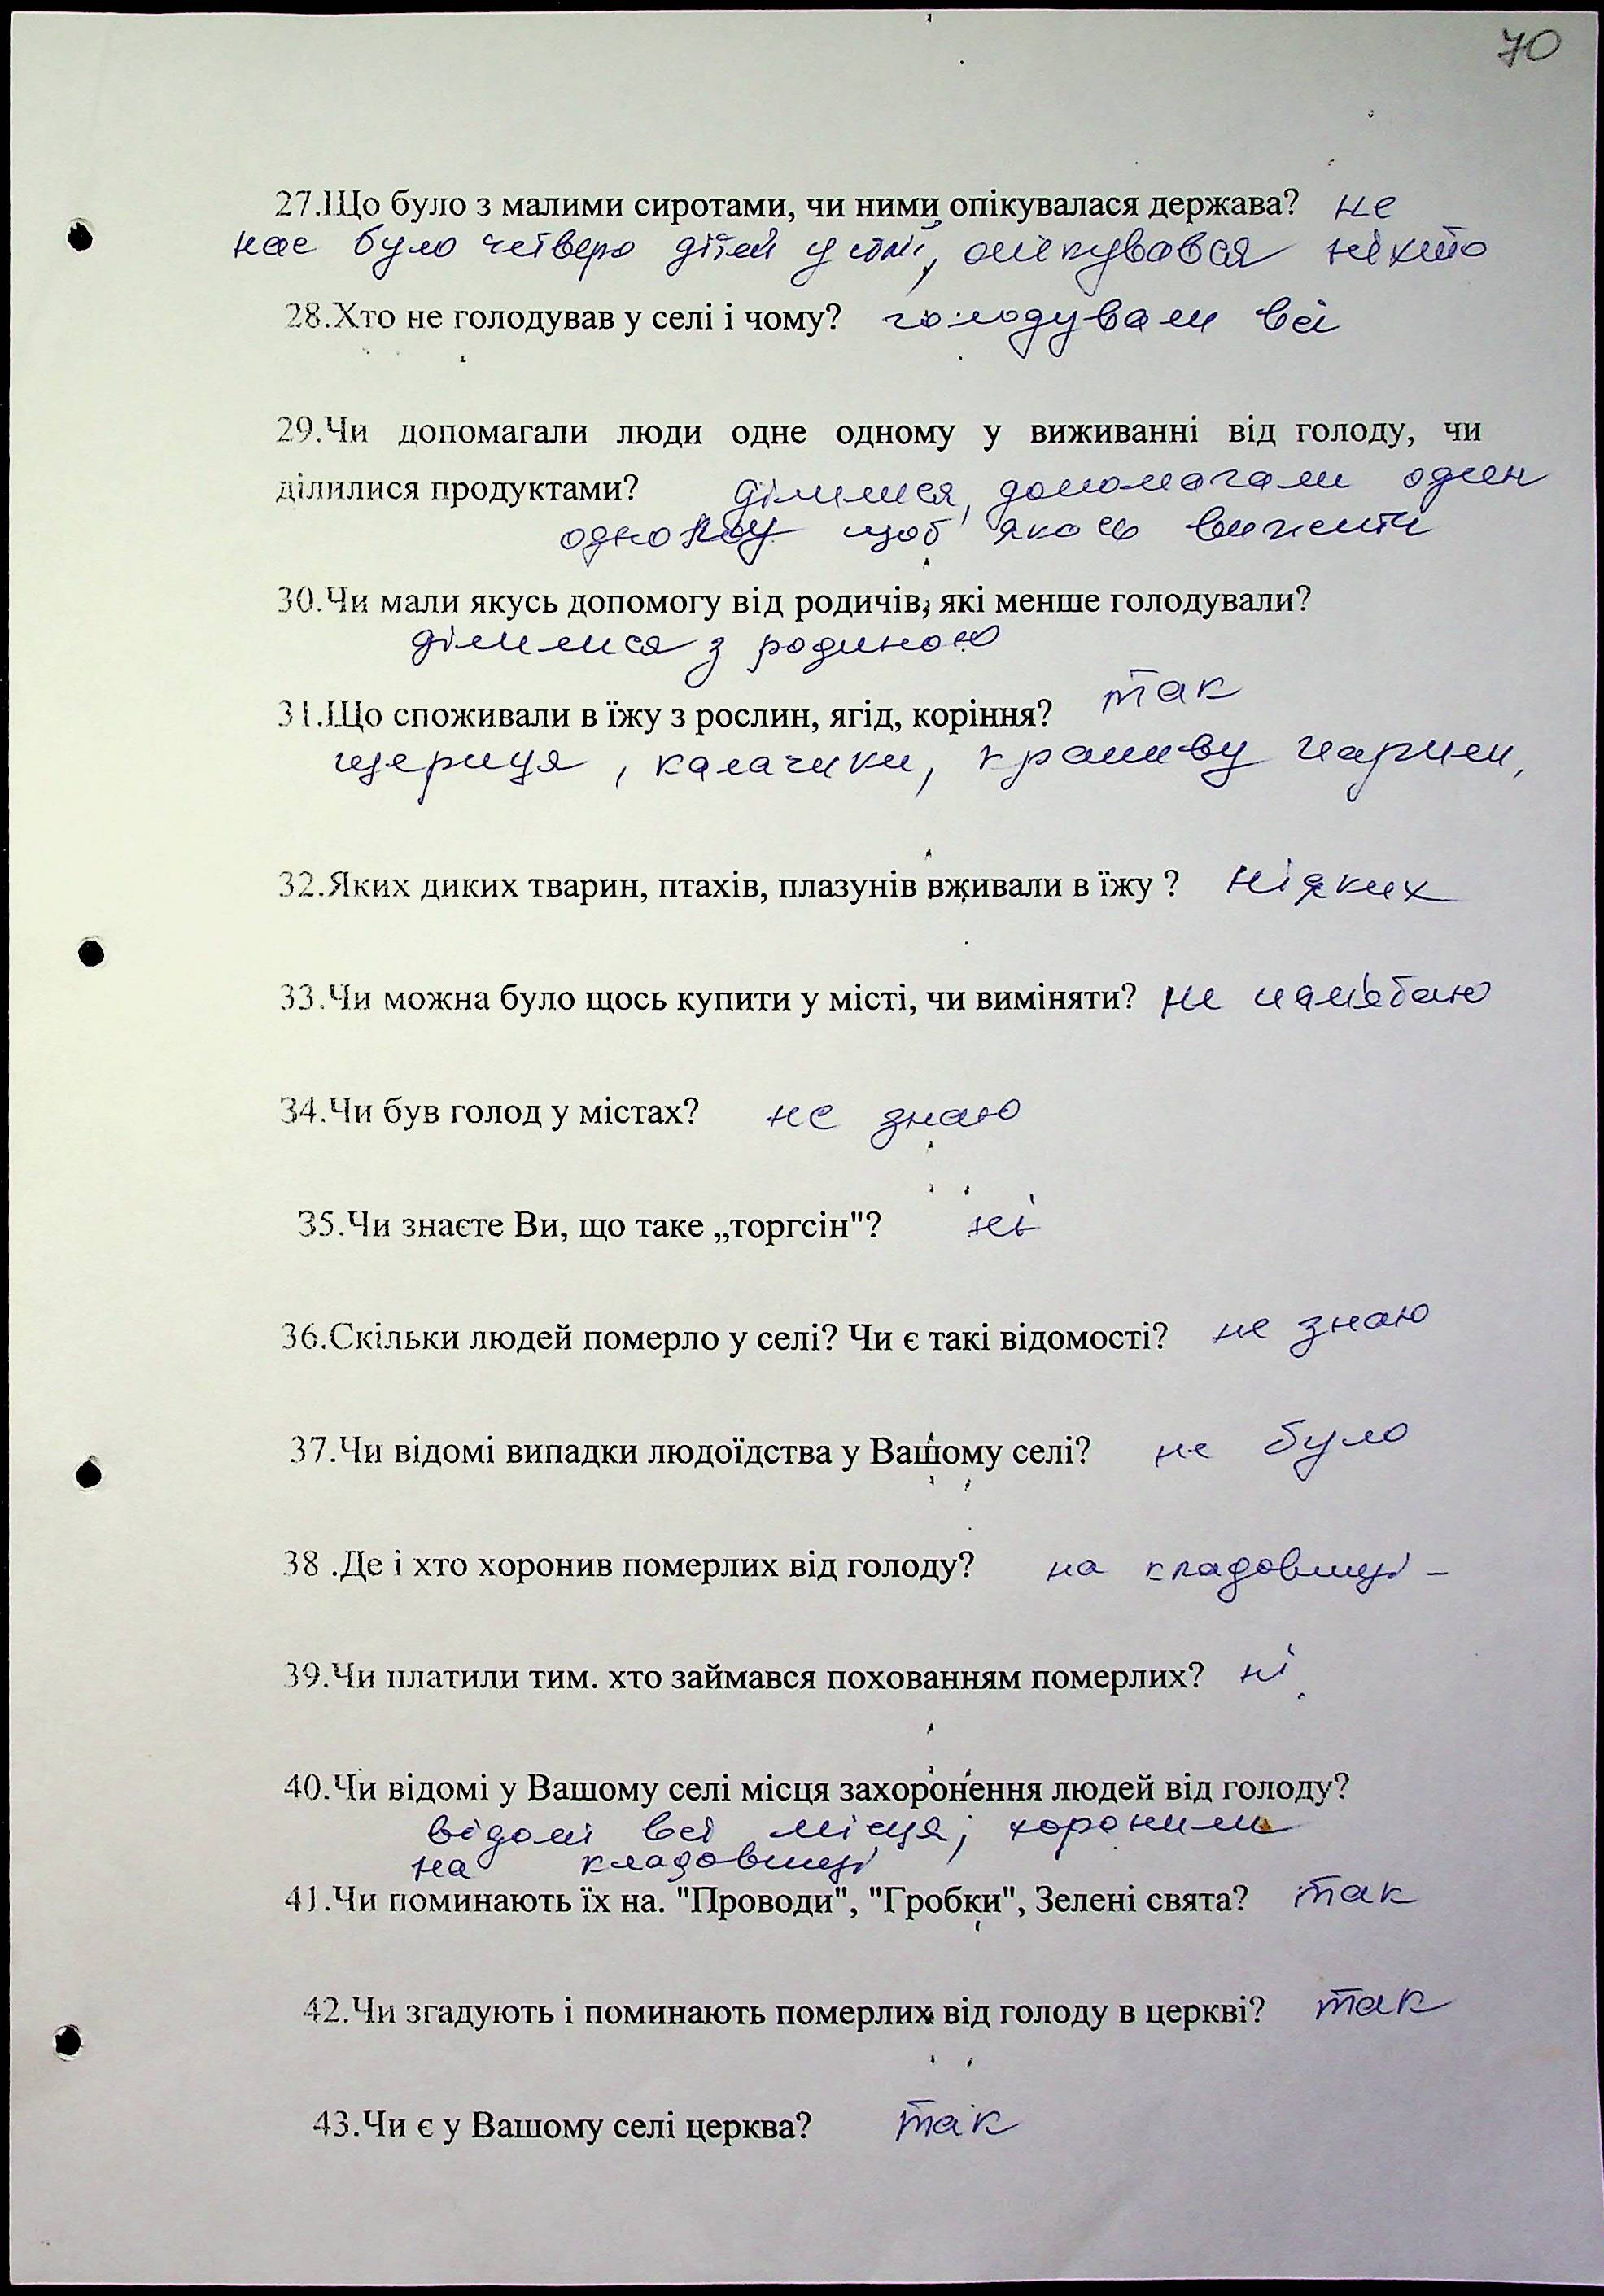 70
27.Що було з малими сиротами, чи ними опікувалася держава? не
нас було четверо дітей у сімї, опікувався ніхто
28.Хто не голодував у селі і чому? голодували всі
29.Чи допомагали люди одне одному у виживанні від голоду, чи
ділилися продуктами? ділилися, допомагали один
одному щоб якось вижити
30.Чи мали якусь допомогу від родичів, які менше голодували?
ділилися з родиною
31.Що споживали в їжу з рослин, ягід, коріння? так
щериця, калачики, кропиву парили,
32.Яких диких тварин, птахів, плазунів вживали в їжу ? ніяких
33.Чи можна було щось купити у місті, чи виміняти? не
34.Чи був голод у містах? не знаю
35.Чи знаєте Ви, що таке „торгсін"? ні
36.Скільки людей померло у селі? Чи є такі відомості? не знаю
37.Чи відомі випадки людоїдства у Вашому селі? не було
38 .Де і хто хоронив померлих від голоду? на кладовищі -
39.Чи платили тим. хто займався похованням померлих? ні
40.Чи відомі у Вашому селі місця захоронення людей від голоду?
відомі всі місця; хоронили
на кладовищі
41.Чи поминають їх на. "Проводи", "Гробки", Зелені свята? так
42.Чи згадують і поминають померлих від голоду в церкві? так
43.Чи є у Вашому селі церква? так